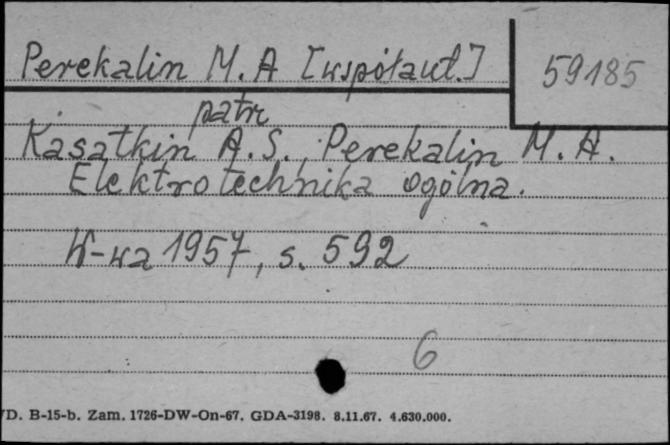 Perekalin M. A [współaut.]
59185
patrz
Kasatkin A. S., Perekalin M. A.
Elektrotechnika ogólna.
W-wa 1957, s. 592
6
D. B-15-b. Zam. 1726-DW-On-67. GDA-3198. 8.11.67. 4.630.000.